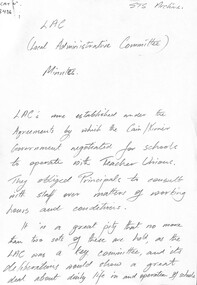 LAC
(Local Administrative Committee)
Minutes.
LAC's were established under the
Agreements by which the Cain/Kirner
Government negotiated for schools
to operate with Teacher Unions.
They obliged Principals to consult
with staff over matters of working
hours and conditions.
It is a great pity that no more
than two sets of these are held, as the
LAC was a key committee, and its
deliberations would show a great
deal about daily life in and operation of schools